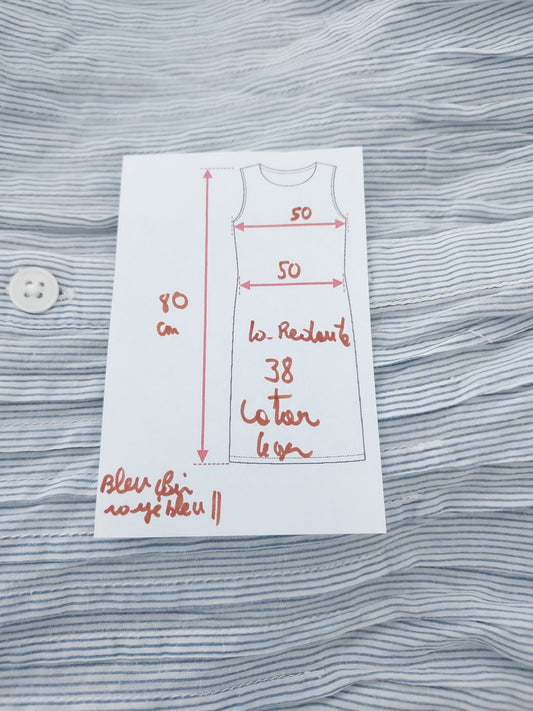 50
50
80
cm
La Redoute
38
Coton
leger
Bleu clair
rayé bleu ||